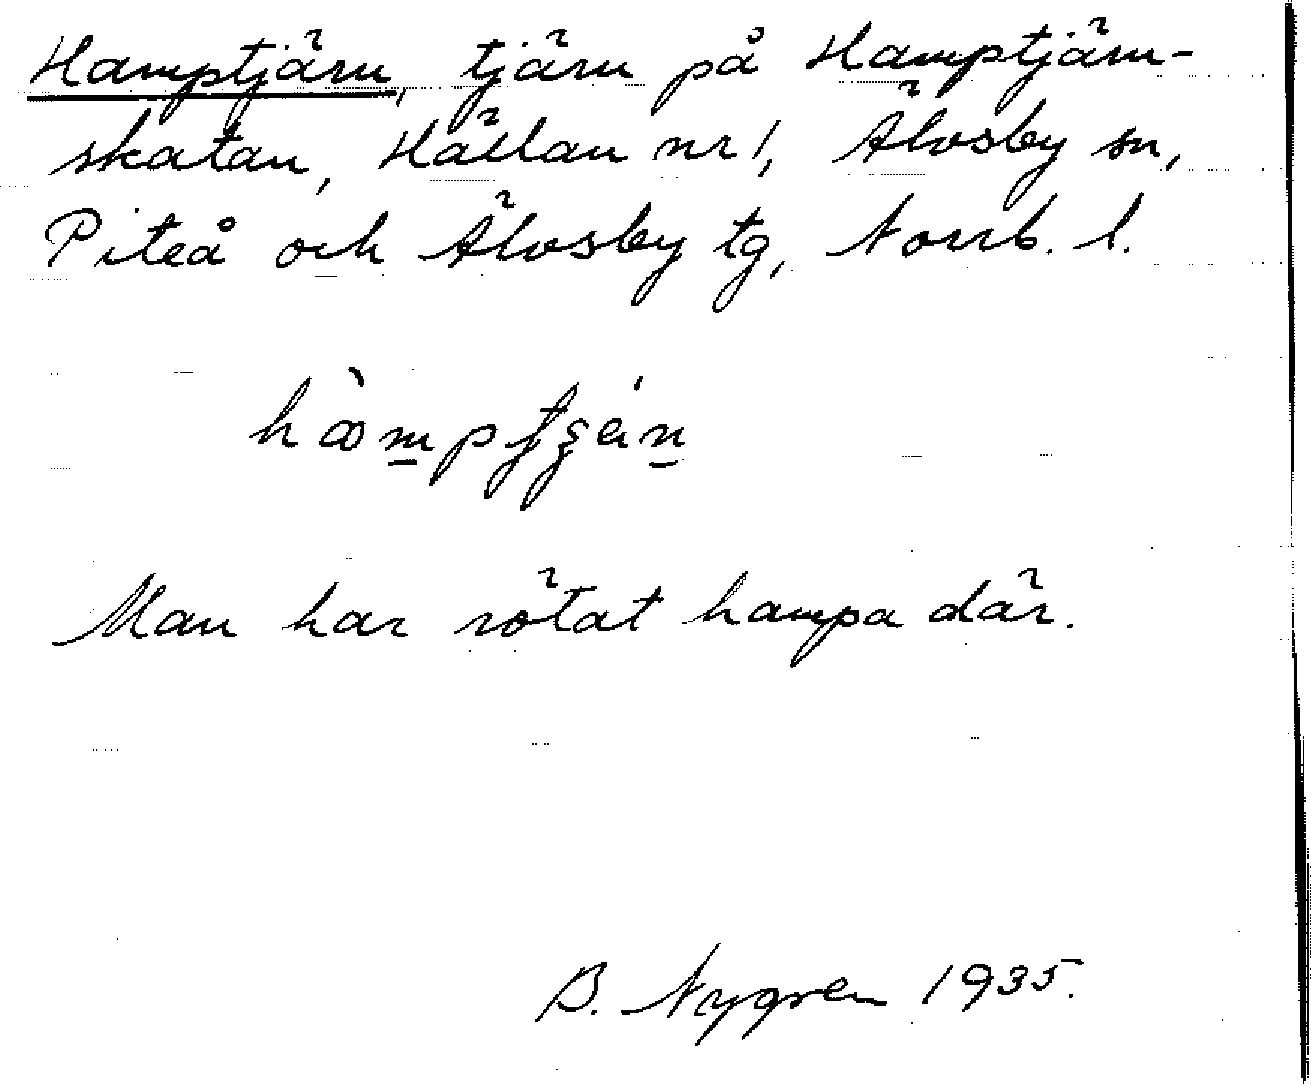 Hamptjärn, tjärn på Hamptjärn-
skatan, Hällan nr 1, Älvsby sn,
Piteå och Älvsby tg, Norrb. l.
Man har rötat hampa där.
B. Nygren 1935.